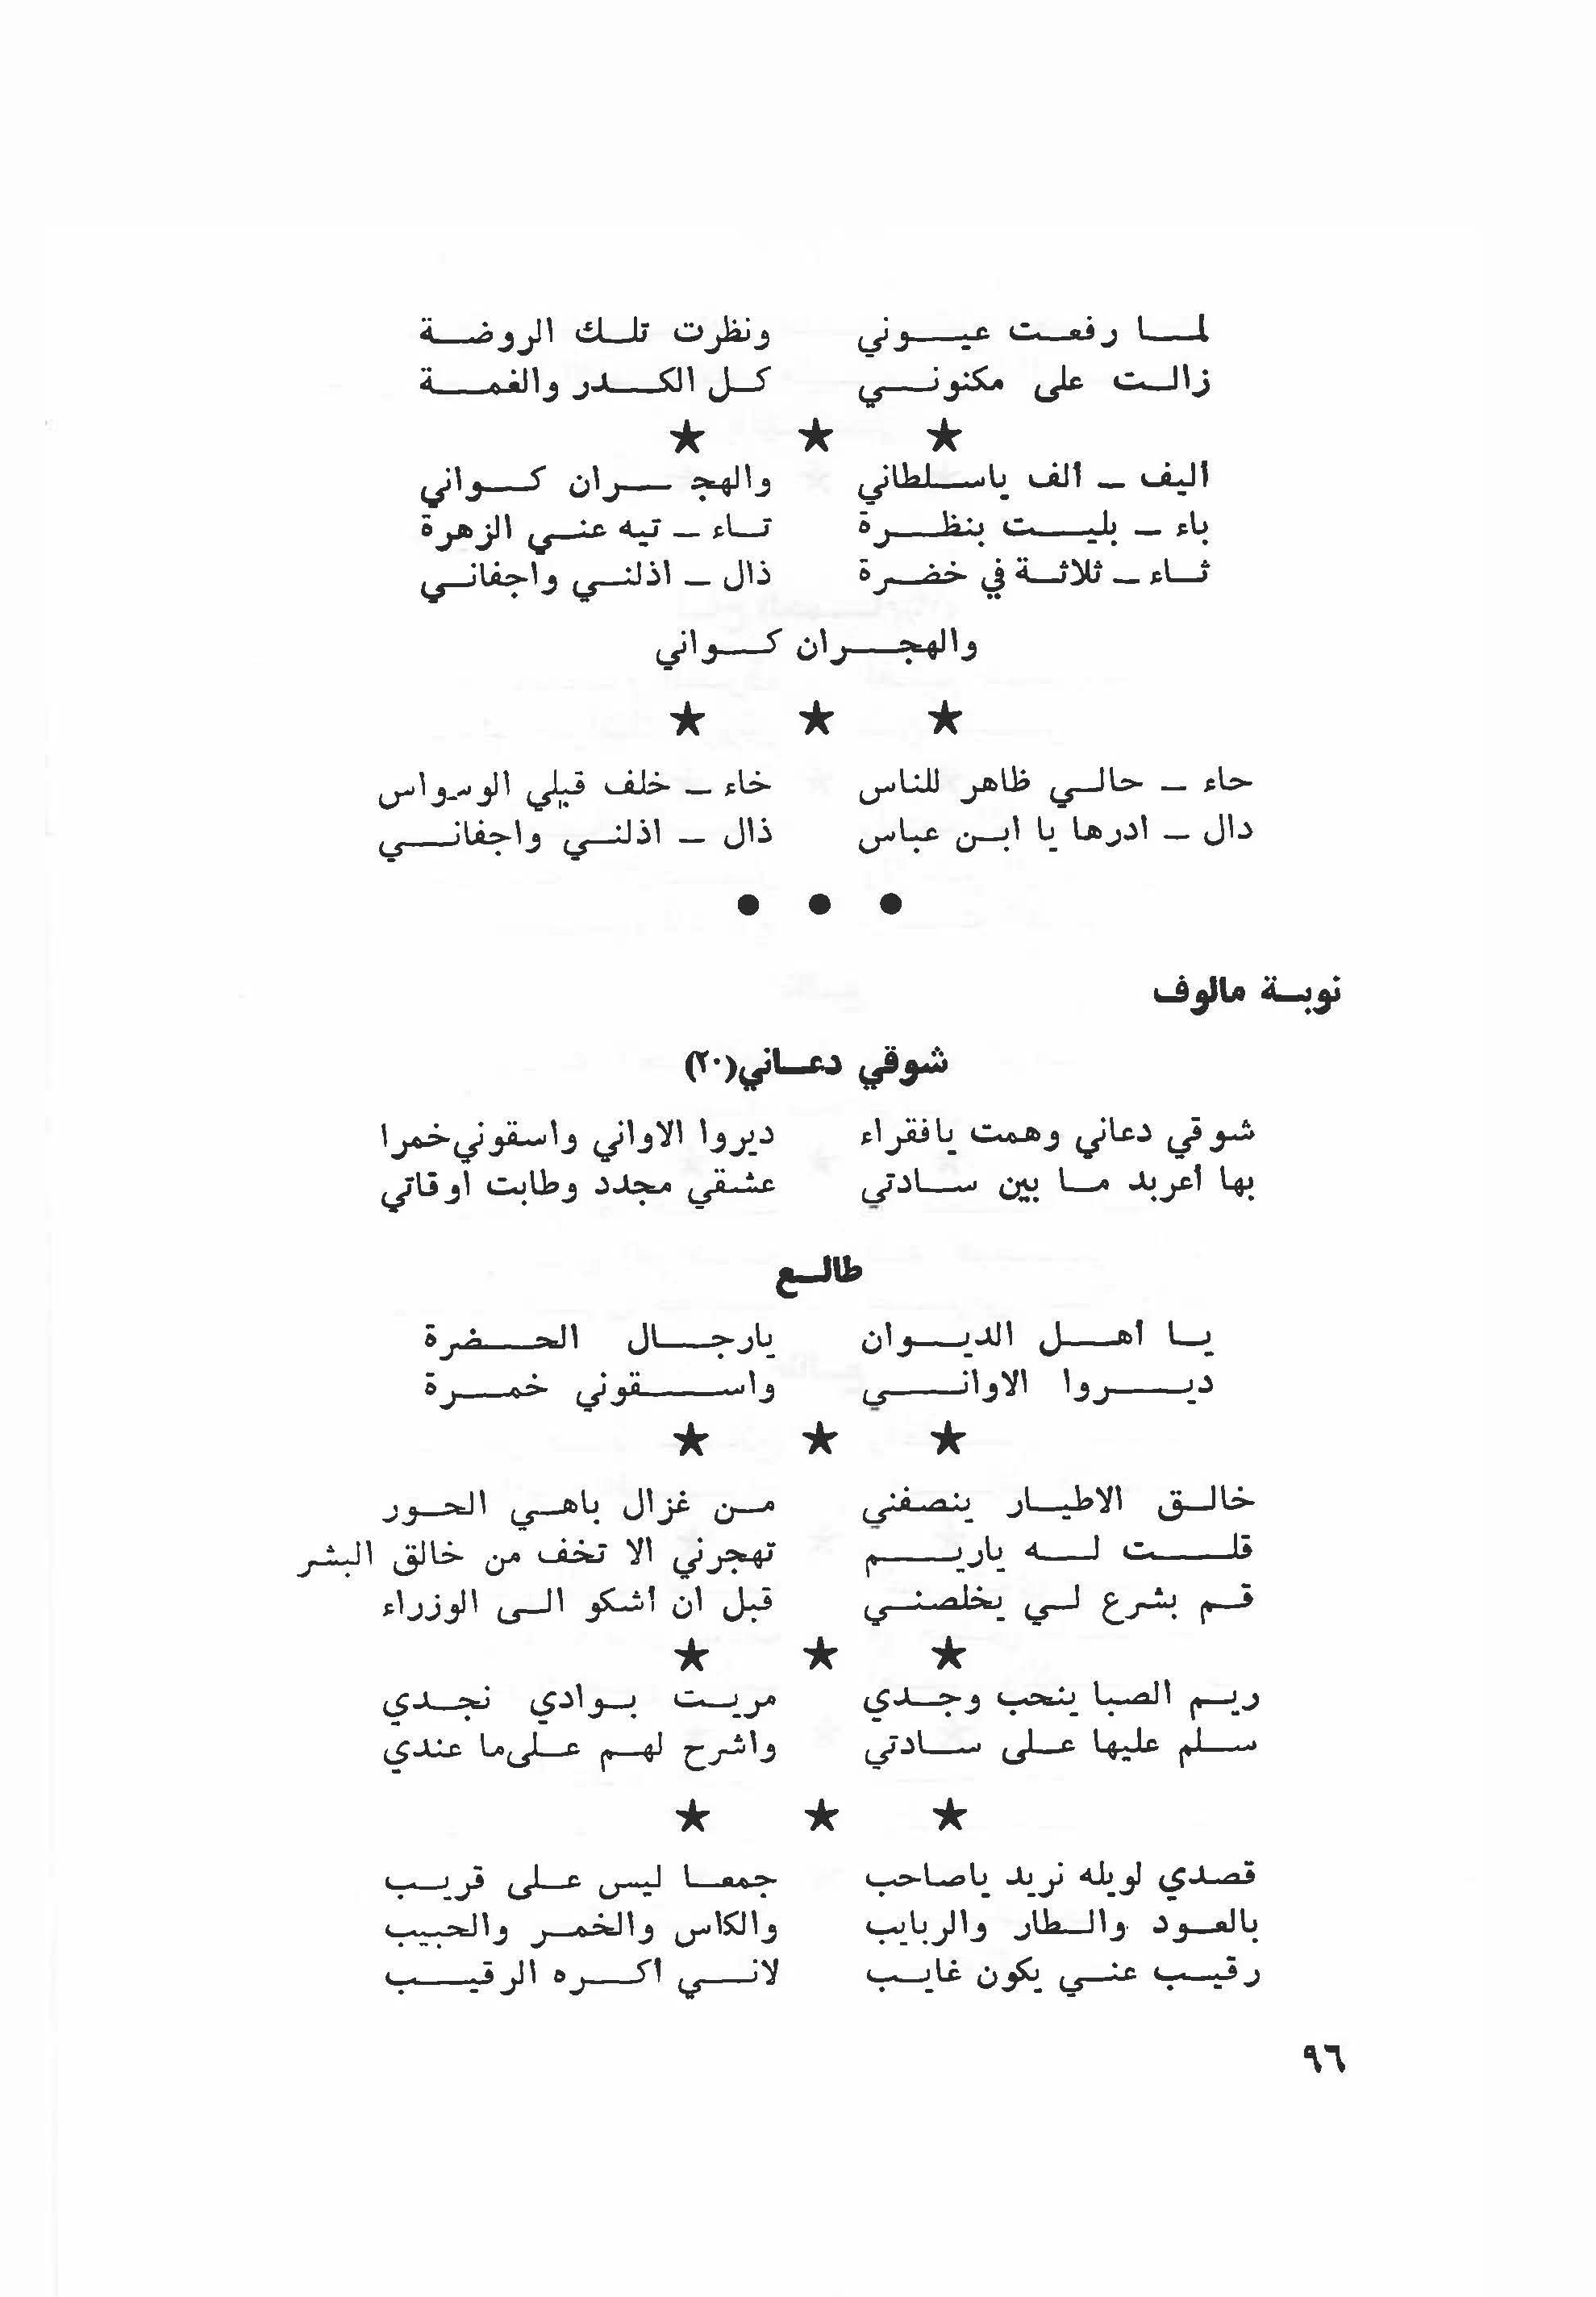 لما رفعت عيوني ونظرت تلك الروضة
زالت على مكنوني كل الكدر والغمة
★ ★ ★
أليف - ألف ياسلطاني والهجران كواني
باء - بليت بنظرة تاء - تيه عني الزهرة
ثاء - ثلاثة في خضرة ذال - اذلني واجفاني
والهجران كواني
★ ★ ★
حاء - حالي ظاهر للناس خاء - خلف قبلي الوسواس
دال - ادرها يا ابن عباس ذال - اذلني واجفاني
● ● ●
نوبة مالوف
شوقي دعاني(٢٠)
شوقي دعاني وهمت يافقراء ديروا الاواني واسقوني خمرا
بها أعربد ما بين سادتي عشقي مجدد وطابت اوقاتي
طالع
يا أهل الديوان يارجال الحضرة
ديروا الاواني واسقوني خمرة
★ ★ ★
خالق الاطيار ينصفني من غزال باهي الحور
قلت له ياريم تهجرني الا تخف من خالق البشر
قم بشرع لي يخلصني قبل ان أشكو الى الوزراء
★ ★ ★
ريم الصبا ينحب وجدي مريت بوادي نجدي
سلم عليها على سادتي واشرح لهم على ما عندي
★ ★ ★
قصدي لويله نريد ياصاحب جمعا ليس على قريب
بالعود والطار والربايب والكاس والخمر والحبيب
رقيب عني يكون غايب لاني أكره الرقيب
٩٦